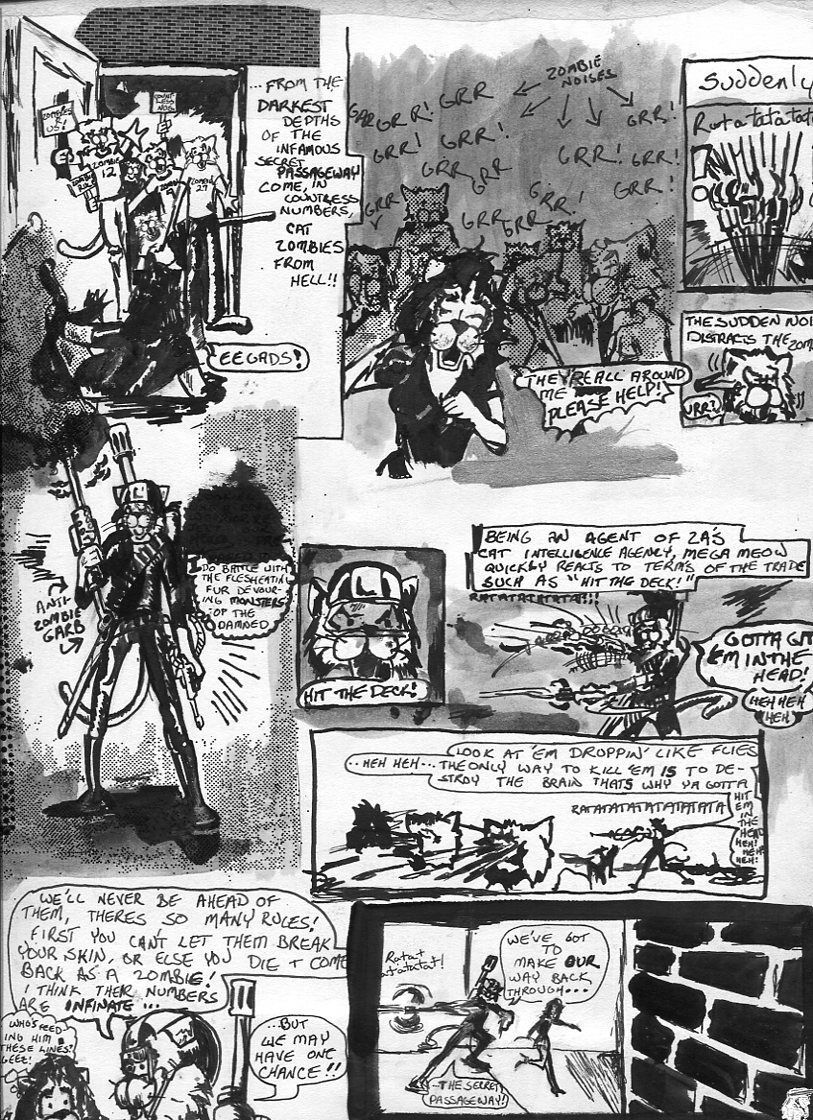 ... FROM THE
DARKEST
DEPTHS
OF THE
INFAMOUS
SECRET
PASSAGEWAY
COME, IN
COUNTLESS
NUMBERS,
CAT
ZOMBIES
FROM
HELL!!
ZOMBIES
R
US!
COUNT
LESS
NOS.
ZOMBIE
12
ZOMBIE
27
EEGADS!
ZOMBIE
NOISES
GRR!
GRR
GRR!
GRR!
GRR!
GRR!
GRR
GRR
GRR!
GRR!
GRR!
GRR!
GRR
GRR
GRR!
THEY'RE ALL AROUND
ME
PLEASE HELP!
SUDDENLY
Ratatatatat
THE SUDDEN NOI
DISTRACTS THE ZOM
URR?
DO BATTLE WITH
THE FLESHEATIN'
FUR DEVOUR-
ING MONSTERS
OF THE
DAMNED
ANTI-
ZOMBIE
GARB
L
HIT THE DECK!
BEING AN AGENT OF ZA'S
CAT INTELLIGENCE AGENCY, MEGA MEOW
QUICKLY REACTS TO TERMS OF THE TRADE
SUCH AS "HIT THE DECK!"
RATATATATATA!!!
GOTTA GIT
'EM IN THE
HEAD!
HEH HEH
HEH
LOOK AT 'EM DROPPIN' LIKE FLIES
..HEH HEH... THE ONLY WAY TO KILL 'EM IS TO DE-
STROY THE BRAIN THATS WHY YA GOTTA
HIT
EM
IN
THE
HEAD
HEH!
HEH!
HEH!
RATATATATATATATATA
WE'LL NEVER BE AHEAD OF
THEM, THERES SO MANY RULES!
FIRST YOU CAN'T LET THEM BREAK
YOUR SKIN, OR ELSE YOU DIE + COME
BACK AS A ZOMBIE!
I THINK THEIR NUMBERS
ARE INFINATE ...
WHO'S FEED
ING HIM
THESE LINES?
GEEZ!
...BUT
WE MAY
HAVE ONE
CHANCE!!
Ratat
atatatat!
WE'VE GOT
TO
MAKE OUR
WAY BACK
THROUGH...
...THE SECRET
PASSAGEWAY!